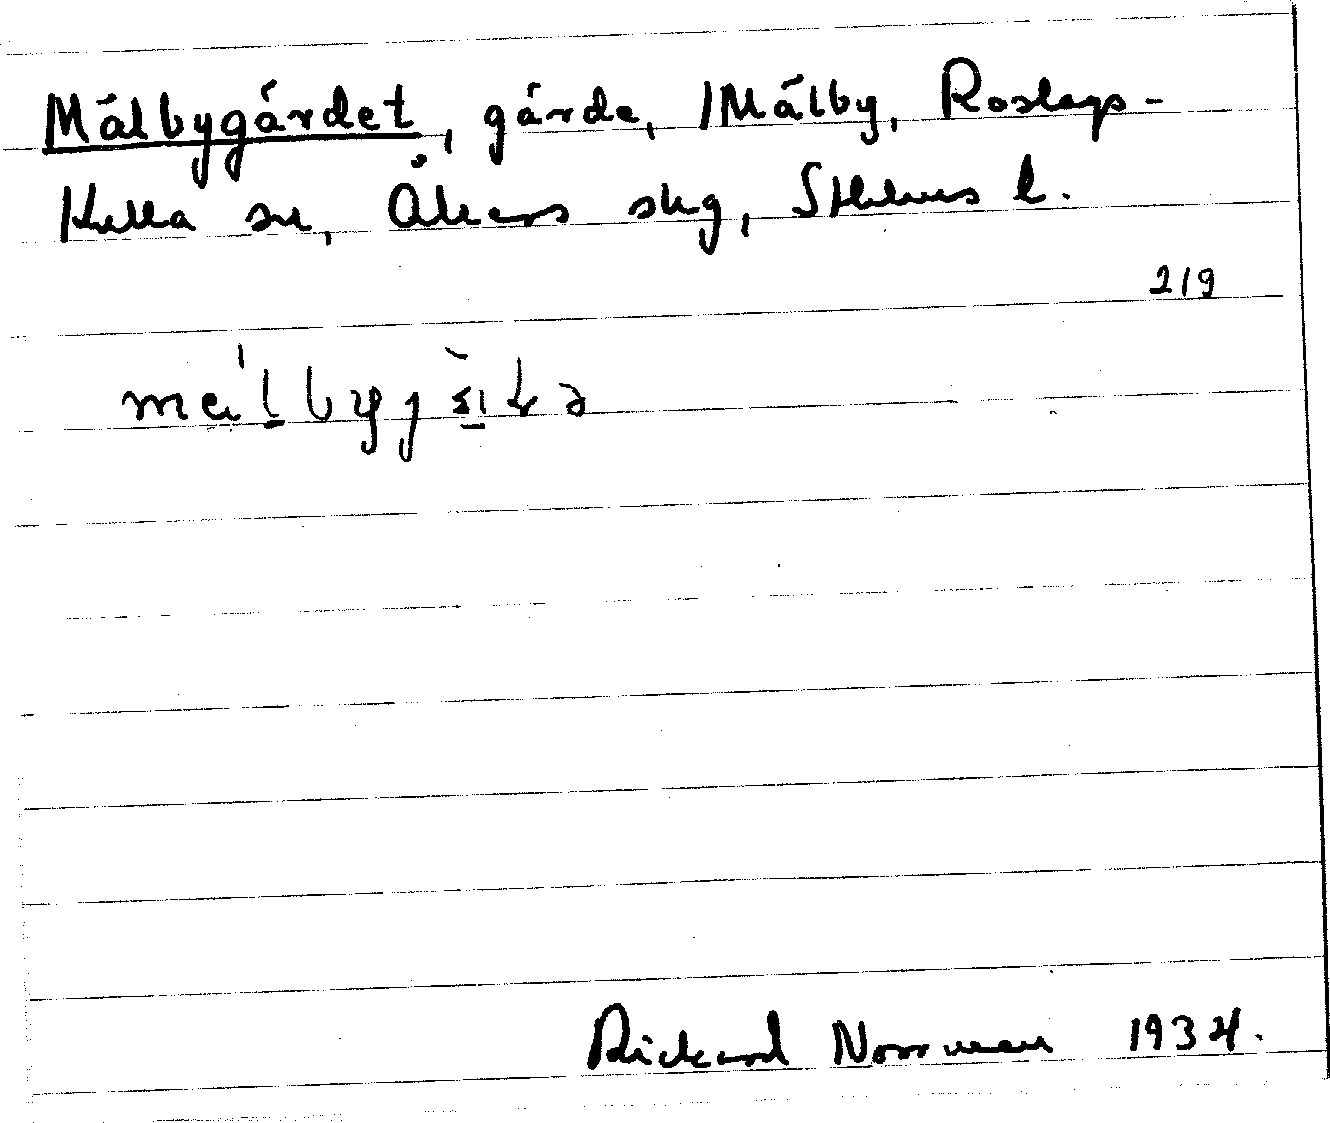 Målbygårdet, gärde, Målby, Roslags-
Kulla sn, Åkers skg, Sthlms l.
219
Rickard Norrman 1934.